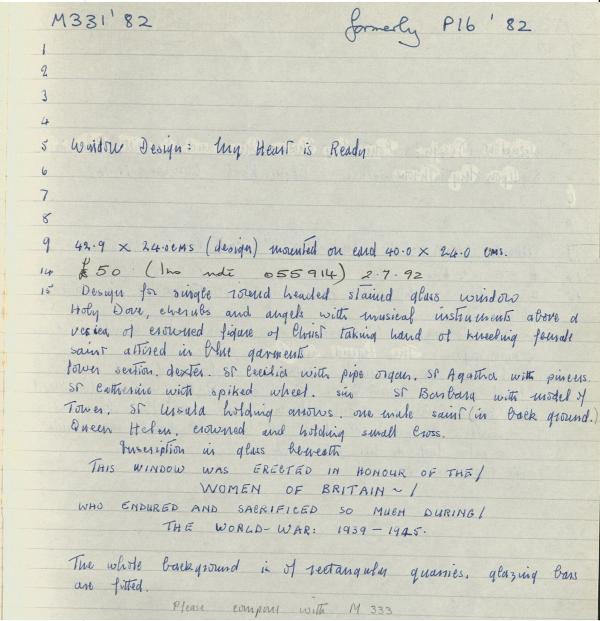 M331'82 formerly P16 '82
1
2
3
4
5 Window Design: My Heart is Ready
6
7
8
9 42.9 x 24.0cms (design) mounted on card 40.0 x 24.0 cms.
14 £50 (Ins note 055914) 2.7.92
15 Design for single round headed stained glass window
Holy Dove, cherubs and angels with musical instruments above a
vesica of crowned figure of Christ taking hand of kneeling female
saint attired in blue garments
Lower section. dexter. St Cecilia with pipe organ. St Agatha with pincers.
St Catherine with spiked wheel. sin St Barbara with model of
Tower. St Ursula holding arrows. one male saint (in back ground.)
Queen Helen. crowned and holding small Cross.
Inscription in glass beneath
THIS WINDOW WAS ERECTED IN HONOUR OF THE/
WOMEN OF BRITAIN ~ /
WHO ENDURED AND SACRIFICED SO MUCH DURING/
THE WORLD-WAR: 1939 - 1945.
The whole background is of rectangular quarries. glazing bars
are fitted.
Please compare with M 333